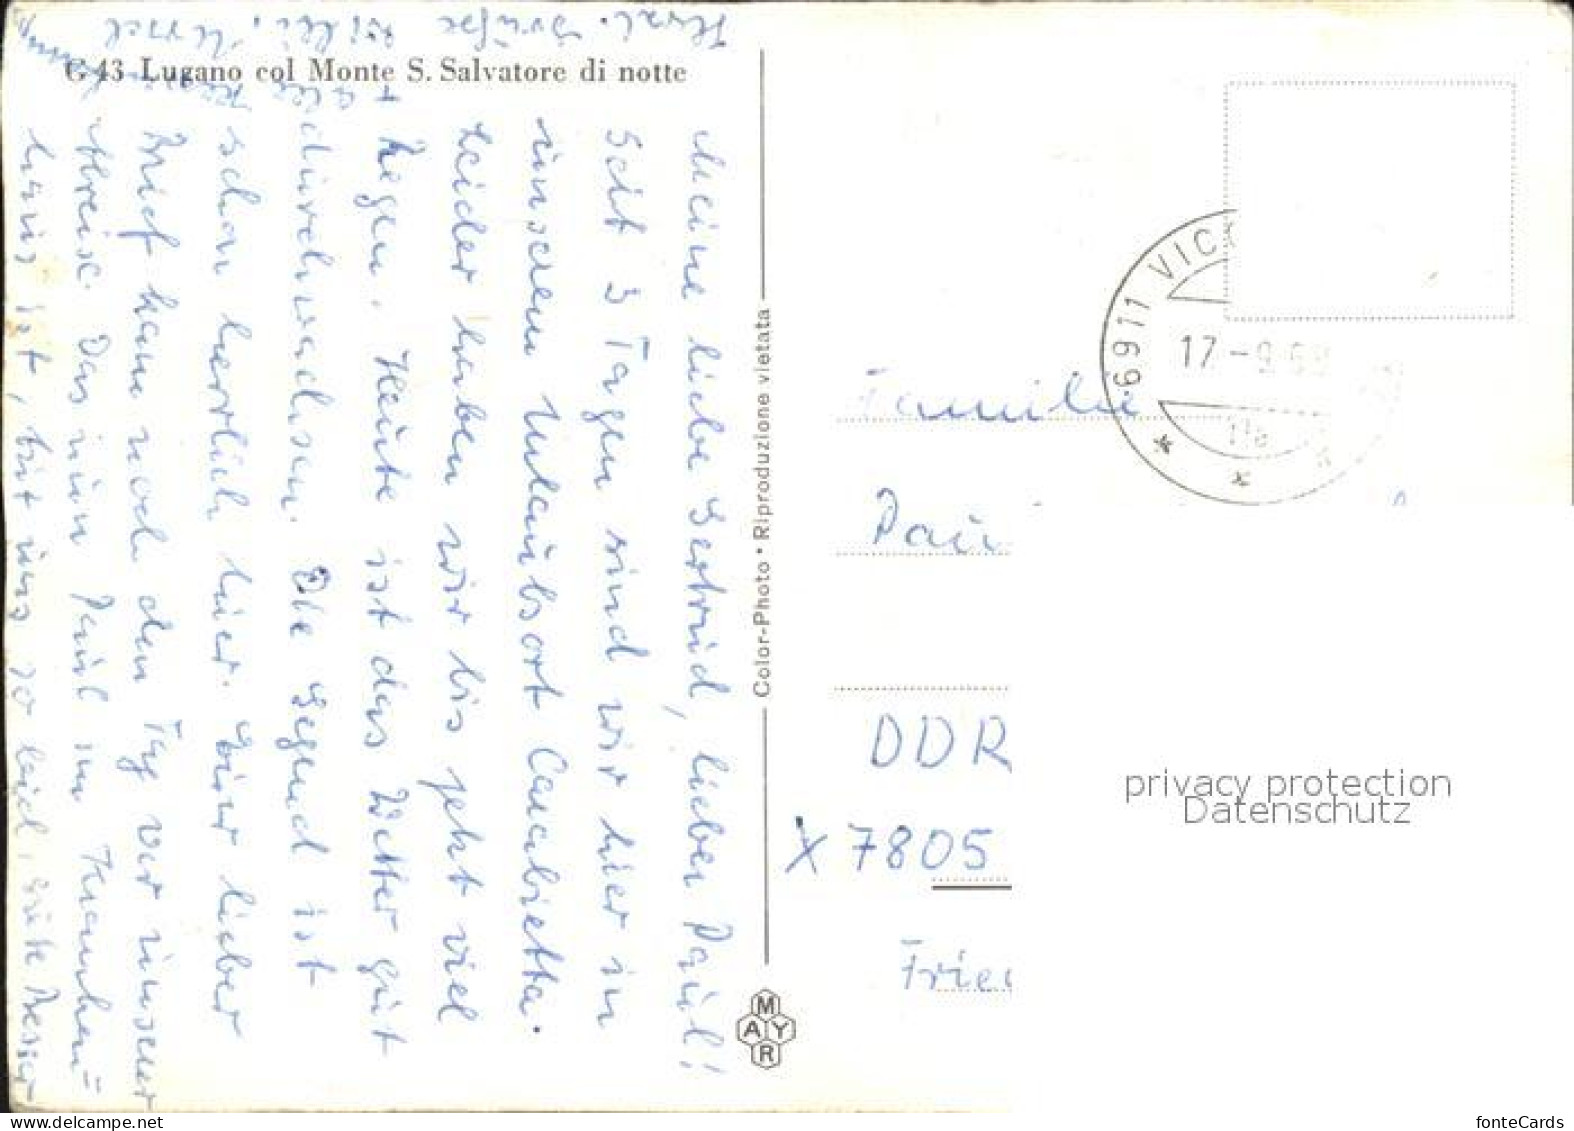 G 43 Lugano col Monte S. Salvatore di notte
Meine liebe Gertrud, lieber Paul!
Seit 3 Tagen sind wir hier in
unserem Urlaubsort Caubietta.
Leider haben wir bis jetzt viel
Regen. Heute ist das Wetter gut
durchwachsen. Die Gegend ist
schon herrlich hier. Euer lieber
Brief kam noch den Tag vor unserer
Abreise. Das nun Paul im Kranken=
haus ist, tut uns so leid, gute Besser
Herzl. Grüße
Color-Photo • Riproduzione vietata
MAYR
6911 VICO
17-9.6
Familie
Pau
DDR
X 7805
Fried
privacy protection
Datenschutz
fonteCards
www.delcampe.net